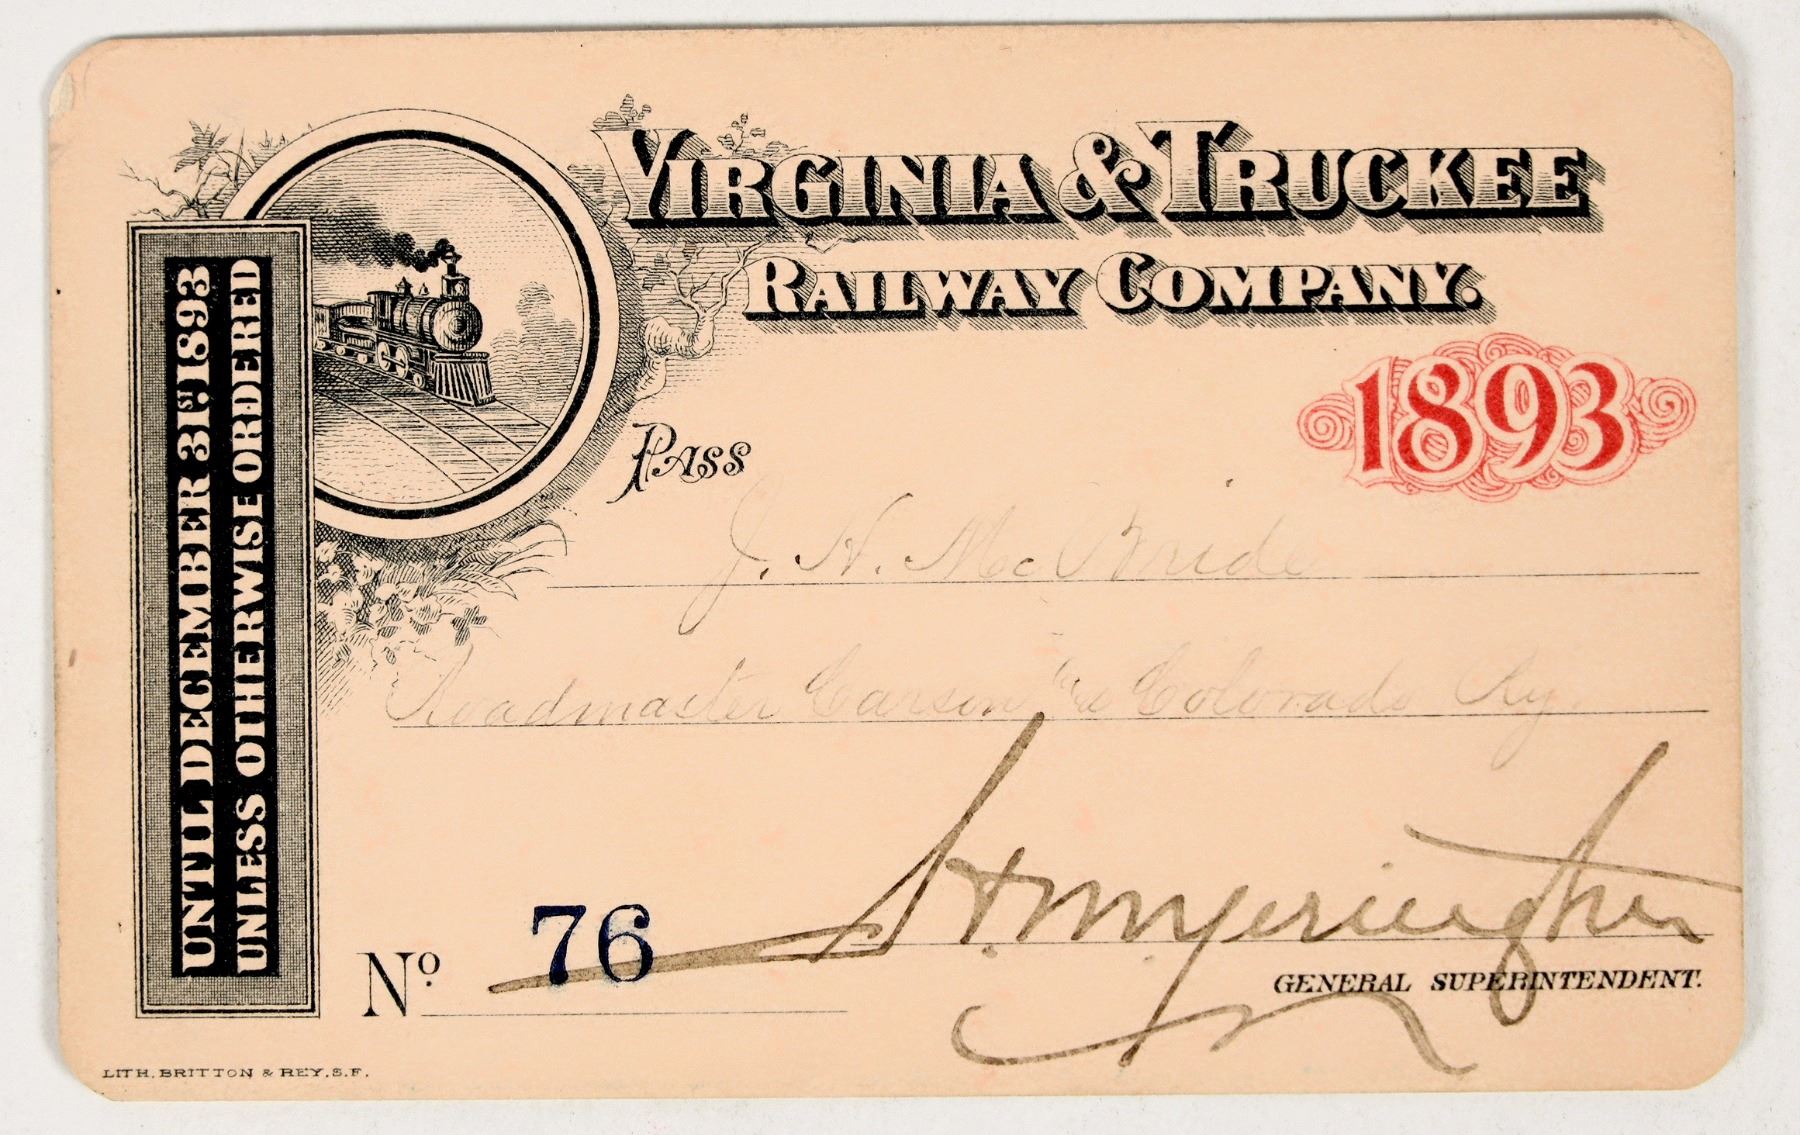 VIRGINIA & TRUCKEE
RAILWAY COMPANY.
1893
UNTIL DECEMBER 31ST 1893
UNLESS OTHERWISE ORDERED
PASS
J. H. McBride
Roadmaster Carson & Colorado Ry.
No. 76
H. M. Yerington
GENERAL SUPERINTENDENT.
LITH. BRITTON & REY, S.F.